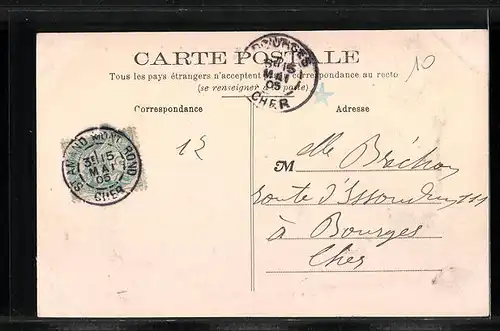 CARTE POSTALE
Tous les pays étrangers n'acceptent pas la correspondance au recto
(se renseigner à la poste)
10
Correspondance
Adresse
12
BOURGES
15
MAI
05
CHER
ST AMAND MONT ROND
3E 15
MAI
05
CHER
M elle Bréchon
route d'Issoudun 111
à Bourges
Cher